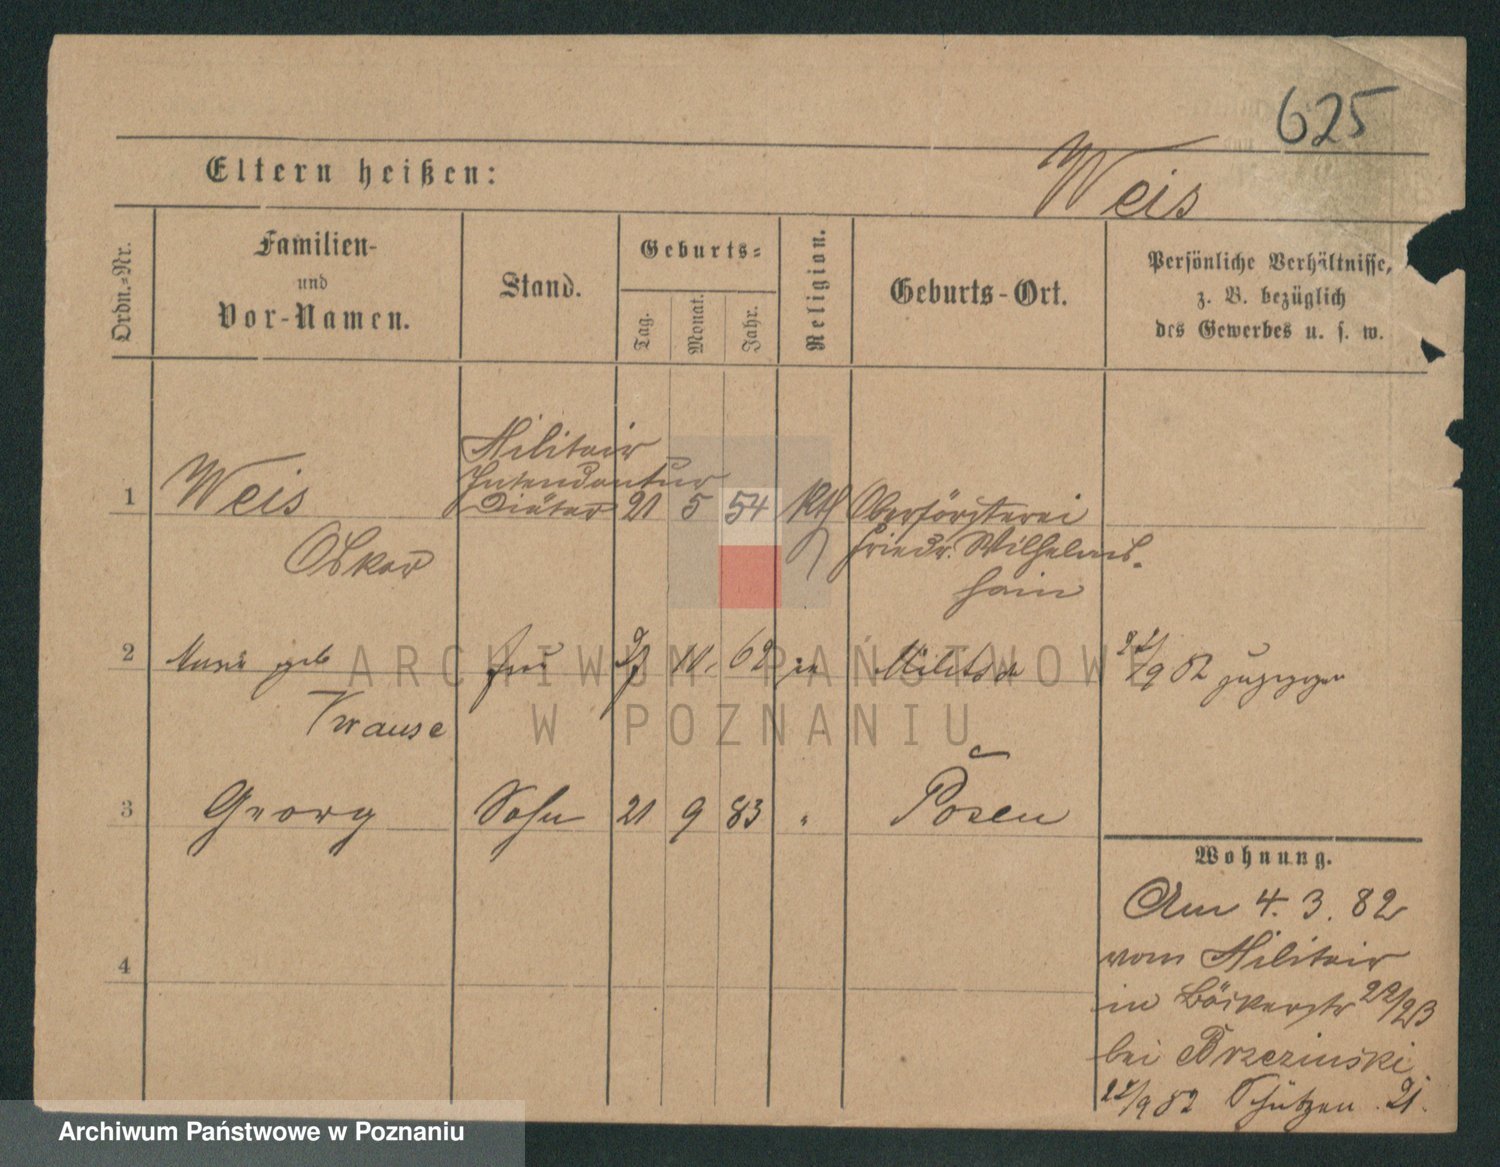 625
Eltern heißen:
Weis
Ordn.-Nr.
Familien-
und
Vor-Namen.
Stand.
Geburts-
Tag.
Monat.
Jahr.
Religion.
Geburts-Ort.
Persönliche Verhältnisse,
z. B. bezüglich
des Gewerbes u. s. w.
1
Weis
Oskar
Militair
Intendantur
Diätar
21 5 54
Kth
Oberförsterei
Friedr. Wilhelms-
hain
2
geb
Krause
Frau
62
Militsch
22/9 82 zugezogen
3
Georg
Sohn
21 9 83
"
Posen
4
Wohnung.
Am 4. 3. 82
vom Militair
in Bäckerstr
bei Brzezinski
22/9 82 Schützen 21.
ARCHIWUM PAŃSTWOWE
W POZNANIU
Archiwum Państwowe w Poznaniu